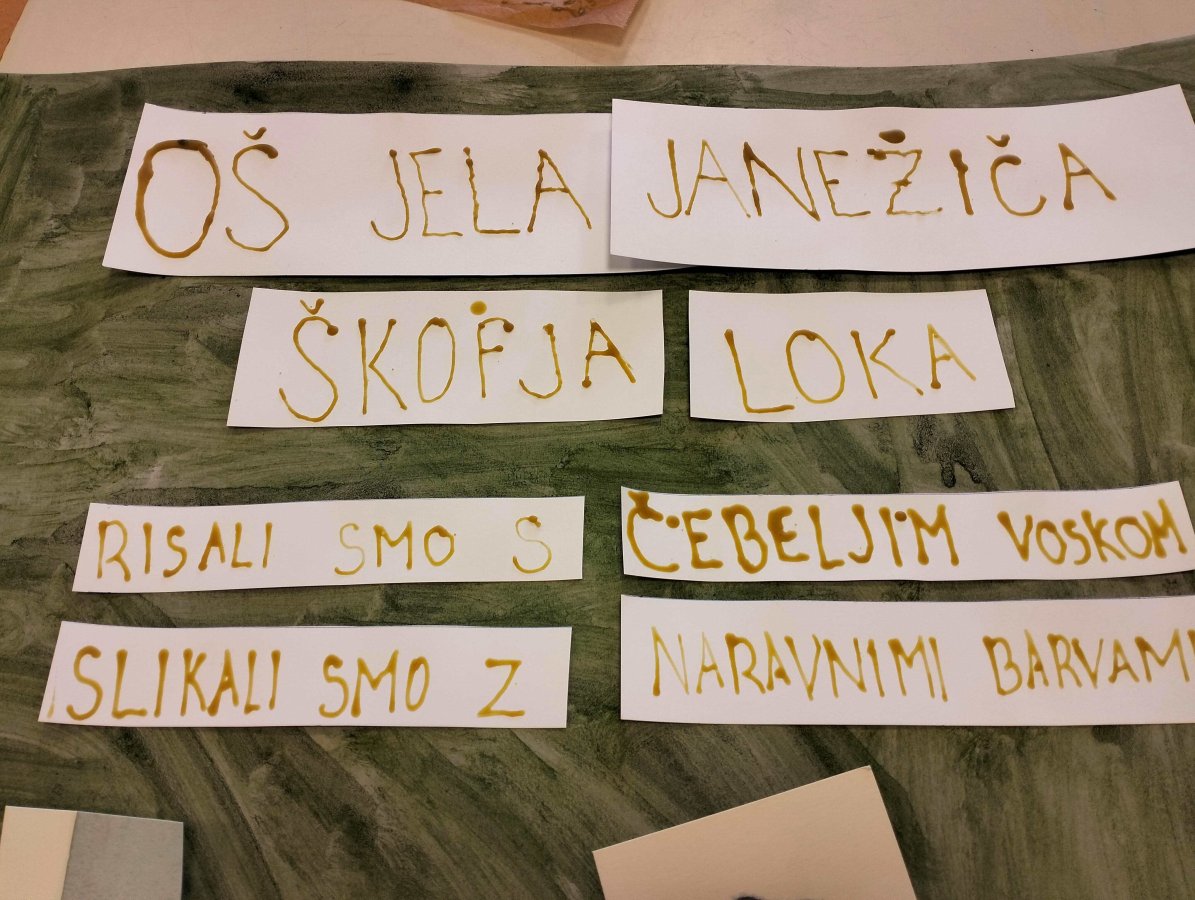 OŠ JELA JANEŽIČA
ŠKOFJA LOKA
RISALI SMO S ČEBELJIM VOSKOM
SLIKALI SMO Z NARAVNIMI BARVAMI